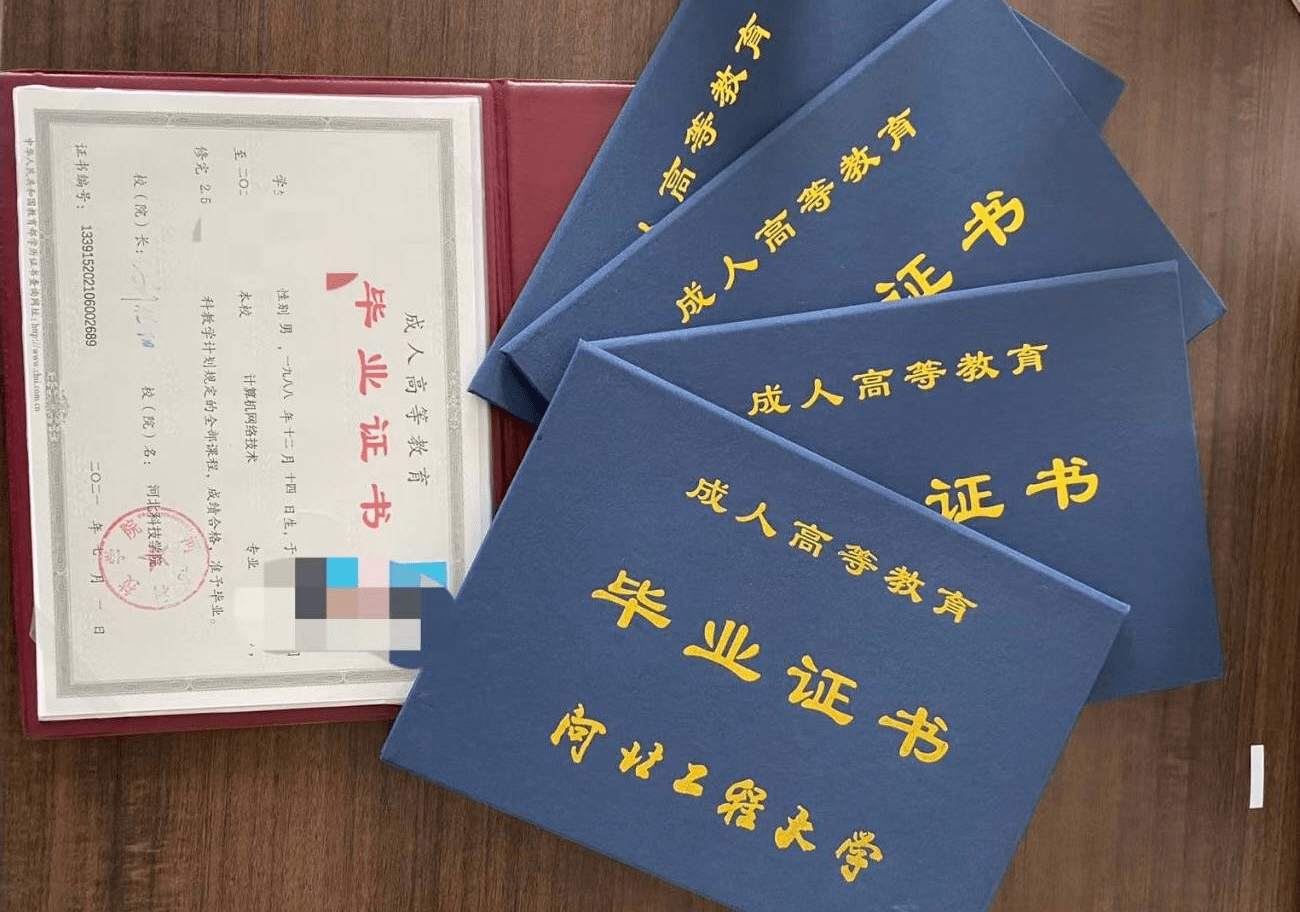 成人高等教育
毕业证书
学
性别 男 ，一九八八 年 十二 月 十四 日生，于
至二〇
本校 计算机网络技术 专业
修完 2.5
科教学计划规定的全部课程，成绩合格，准予毕业。
校（院）长：
校（院）名： 河北科技学院
证书编号： 133915202106002689
二〇二一 年 七 月 一 日
中华人民共和国教育部学历证书查询网址：http://www.chsi.com.cn
人高等教育
成人高等教育
证书
成人高等教育
证书
成人高等教育
毕业证书
河北工程大学